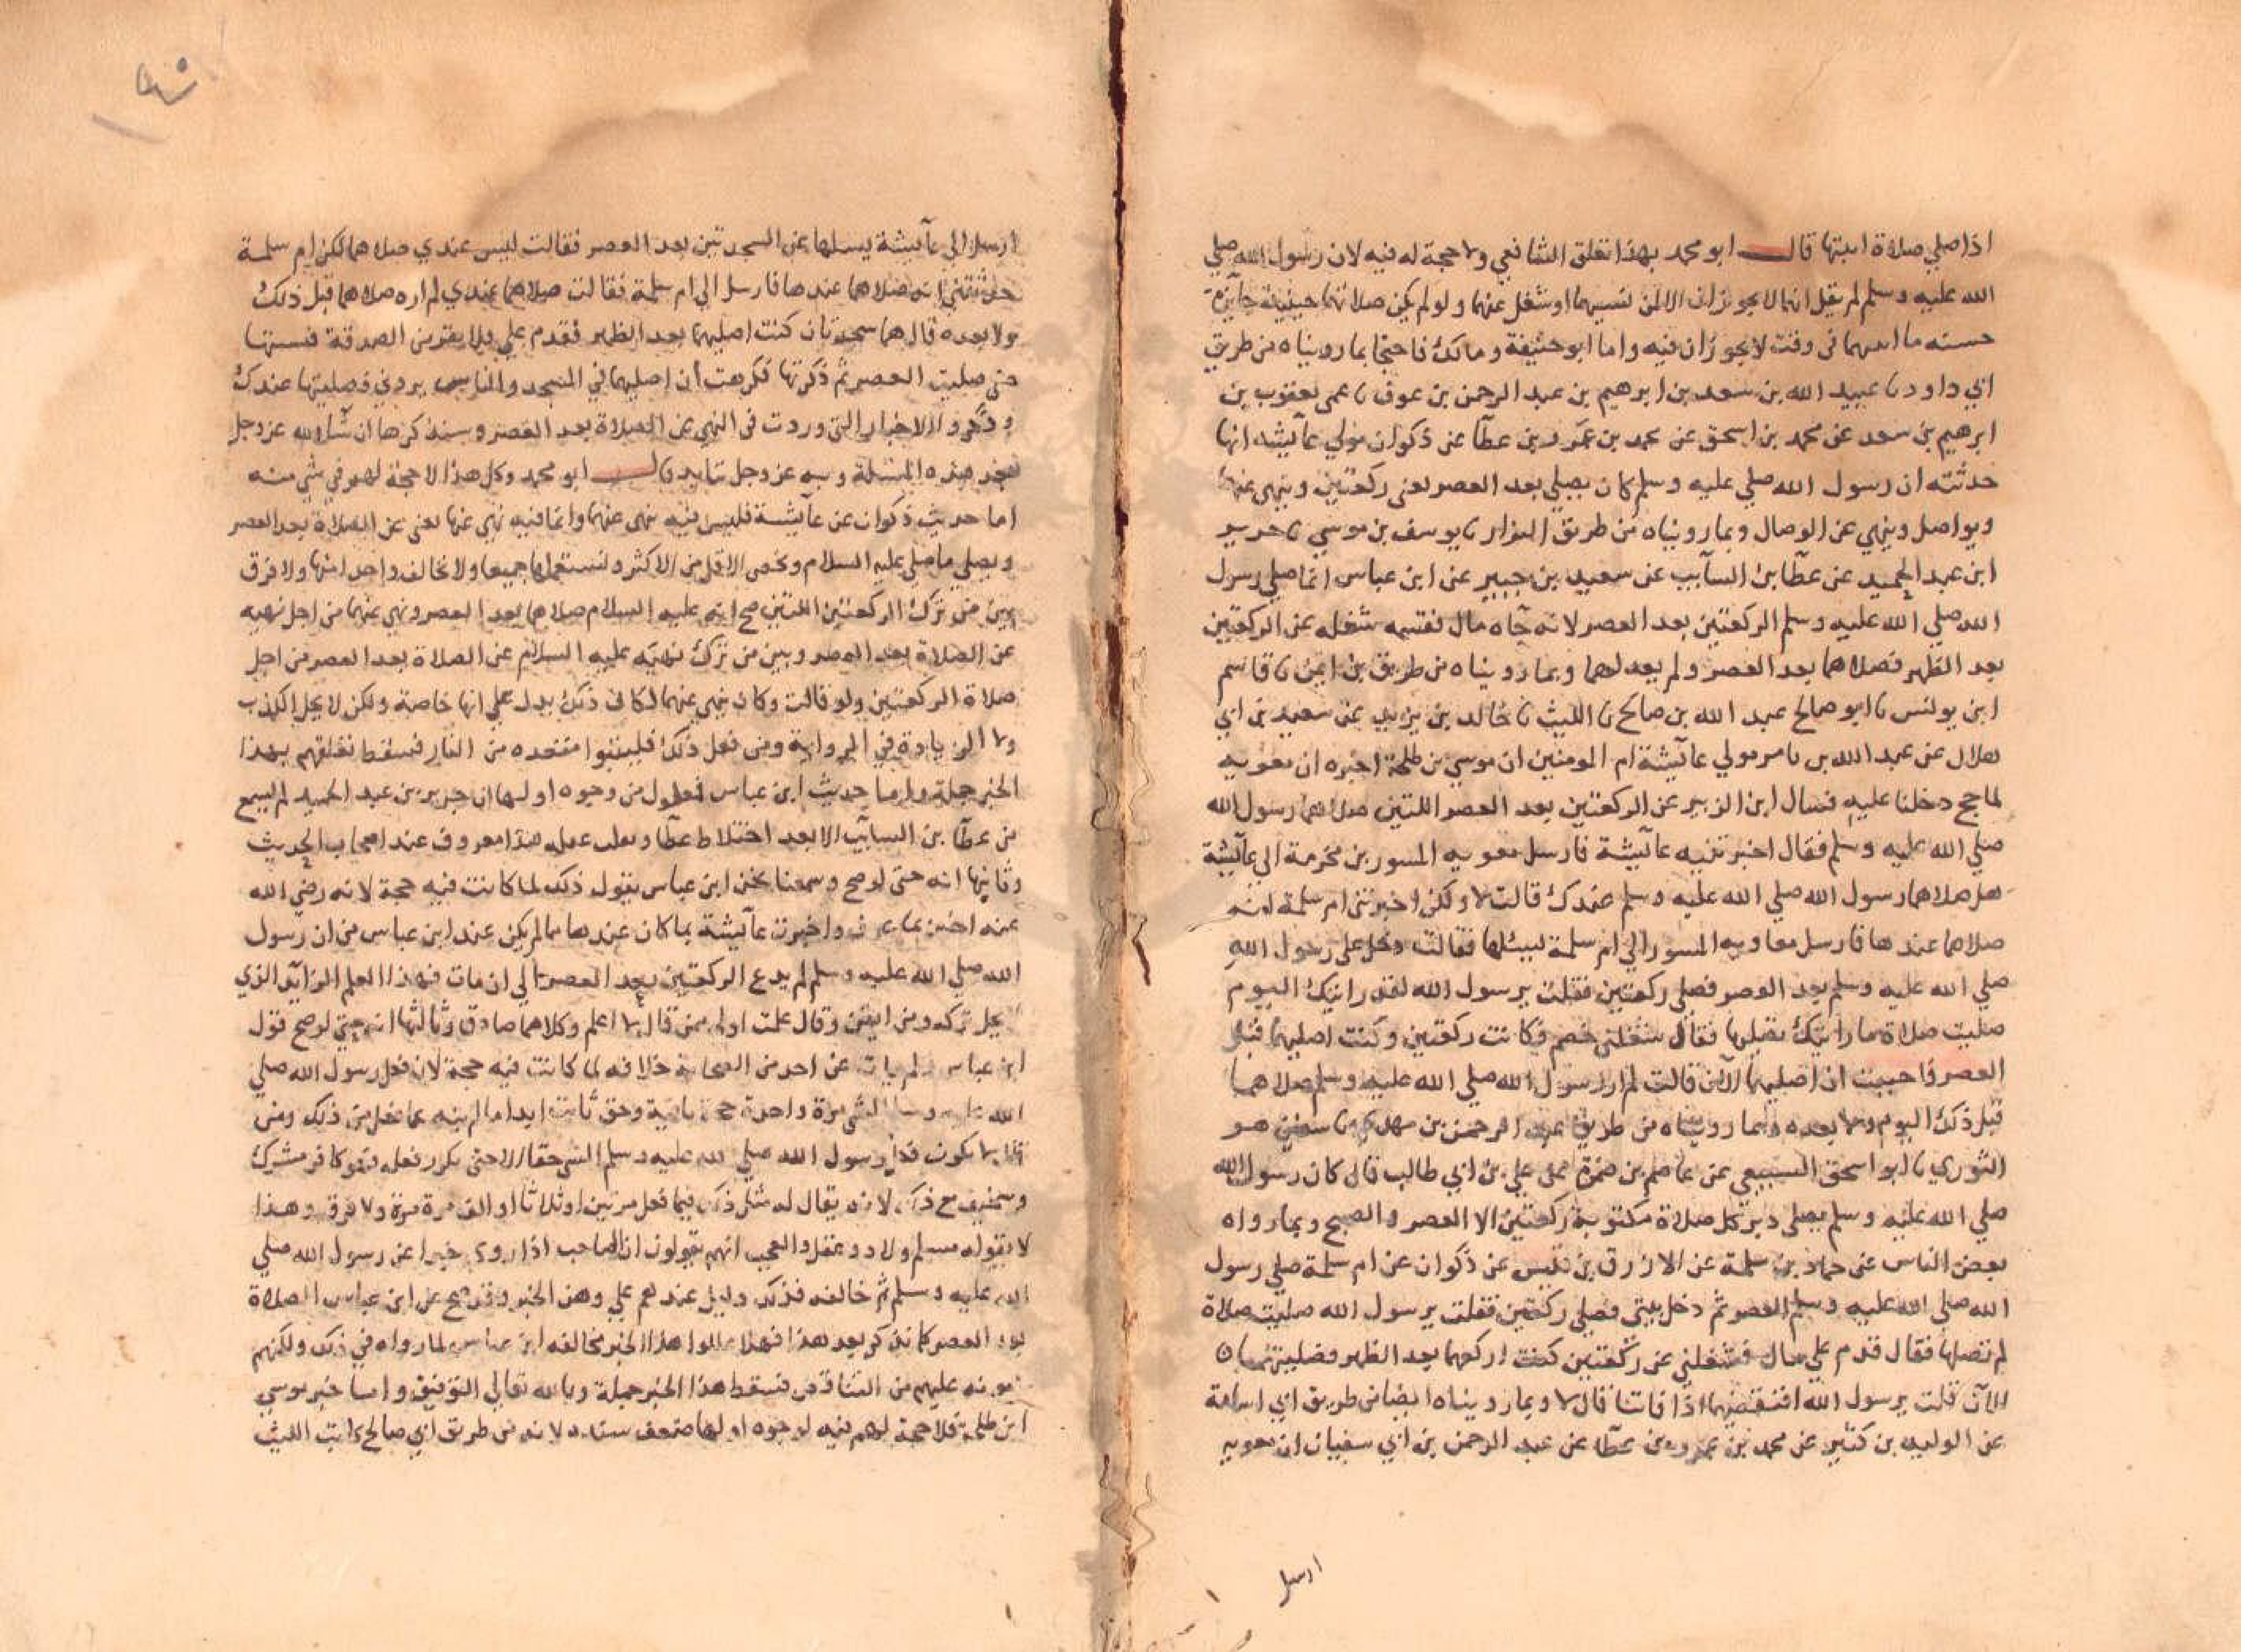 اذا صلي صلاة اثبتها قال ابو محمد بهذا تعلق الشافعي ولا حجة له فيه لان رسول الله صلي
الله عليه وسلم لم يقل انهما لا يجوزان الا لمن نسيهما او شغل عنهما ولو لم يكن صلاتهما حينيذ جايزة
حسنه ما اثبتهما في وقت لا يجوزان فيه واما ابو حنيفة ومالك فاحتجا بما رويناه من طريق
ابي داود نا عبيد الله بن سعد بن ابرهيم بن عبد الرحمن بن عوف نا عمي يعقوب بن
ابرهيم بن سعد عن محمد بن اسحق عن محمد بن عمرو بن عطآ عن ذكوان مولي عآيشه انها
حدثته ان رسول الله صلي عليه وسلم كان يصلي بعد العصر يعني ركعتين وينهي عنها
ويواصل وينهي عن الوصال وبما رويناه من طريق البزار نا يوسف بن موسي نا جرير
ابن عبد الحميد عن عطآ بن السآيب عن سعيد بن جبير عن ابن عباس انما صلي رسول
الله صلي الله عليه وسلم الركعتين بعد العصر لانه جآه مال فقسمه شغله عن الركعتين
بعد الظهر فصلاهما بعد العصر ولم يعد لهما وبما رويناه من طريق بن ايمن نا قاسم
ابن يونس نا ابو صالح عبد الله بن صالح نا الليث نا خالد بن يزيد عن سعيد بن ابي
هلال عن عبد الله بن نامر مولي عآيشة ام المومنين ان موسي بن طلحة اخبره ان معويه
لما حج دخلنا عليه فسال ابن الزبير عن الركعتين بعد العصر اللتين صلاهما رسول الله
صلي الله عليه وسلم فقال اخبرتنيه عآيشة فارسل معويه المسور بن مخرمة الي عآيشة
هل صلاهما رسول الله صلي الله عليه وسلم عندك قالت لا ولكن اخبرتني ام سلمة انه
صلاهما عندها فارسل معاويه المسور الي ام سلمة ليسئلها فقالت دخل علي رسول الله
صلي الله عليه وسلم بعد العصر فصلي ركعتين فقلت يرسول الله لقد رايتك اليوم
صليت صلاة ما رايتك تصليها فقال شغلني خصم فكانت ركعتين وكنت اصليهما قبل
العصر فاحببت ان اصليهما الآن قالت لم ار رسول الله صلي الله عليه وسلم صلاهما
قبل ذلك اليوم ولا بعده وبما رويناه من طريق عبد الرحمن بن مهدي نا سفين هو
الثوري نا ابو اسحق السبيعي عن عاصم بن ضمرة عن علي بن ابي طالب قال كان رسول الله
صلي الله عليه وسلم يصلي دبر كل صلاة مكتوبة ركعتين الا العصر والصبح وبما رواه
بعض الناس عن حماد بن سلمة عن الازرق بن قيس عن ذكوان عن ام سلمة صلي رسول
الله صلي الله عليه وسلم العصر ثم دخل بيتي فصلي ركعتين فقلت يرسول الله صليت صلاة
لم تصلها فقال قدم علي مال فشغلني عن ركعتين كنت اركعهما بعد الظهر فصليتهما
الآن قلت يرسول الله افنقضيهما اذا فاتتا قال لا وبما رويناه ايضا من طريق ابي اسامة
عن الوليد بن كثير عن محمد بن عمرو بن عطآ عن عبد الرحمن بن ابي سفيان ان معويه
ارسل
ارسل الي عآيشة يسلها عن السجدتين بعد العصر فقالت ليس عندي صلاهما لكن ام سلمة
حدثتني انه صلاهما عندها فارسل الي ام سلمة فقالت صلاهما عندي لم اره صلاهما قبل ذلك
ولا بعده قال هما سجدتان كنت اصليهما بعد الظهر فقدم علي قلايص من الصدقة فنسيتها
حتي صليت العصر ثم ذكرتها فكرهت ان اصليهما في المسجد والناس يروني فصليتها عندك
وذكروا الاخبار التي وردت في النهي عن الصلاة بعد العصر وسنذكرها ان شآ الله عز وجل
هذه المسئلة وبه عز وجل نتايد قال ابو محمد وكل هذا لا حجة لهم في شي منه
اما حديث ذكوان عن عآيشة فليس فيه نهي عنهما وانما فيه نهي عنها يعني عن الصلاة بعد العصر
ويصلي ما صلي عليه السلام ونخص الاقل من الاكثر ونستعملها جميعا ولا نخالف واحدا منها ولا فرق
بين من ترك الركعتين اللتين صح انه عليه السلام صلاهما بعد العصر ونهي عنهما من اجل نهيه
عن الصلاة بعد العصر وبين من ترك نهيه عليه السلام عن الصلاة بعد العصر من اجل
صلاة الركعتين ولو قالت وكان ينهي عنهما لكان ذلك يدل علي انها خاصة ولكن لا يحل الكذب
ولا الزيادة في الرواية ومن فعل ذلك فليتبوا مقعده من النار فسقط تعلقهم بهذا
الخبر جملة واما حديث ابن عباس فمعلول من وجوه اولها ان جرير بن عبد الحميد لم يسمع
من عطآ بن السآيب الا بعد اختلاط عطآ عقله هذا معروف عند اصحاب الحديث
وثانيها انه حتي لو صح وسمعنا نحن ابن عباس يقول ذلك لما كانت فيه حجة لانه رضي الله
عنه اخبر بما عرف واخبرت عآيشة بما كان عندها مما لم يكن عند ابن عباس من ان رسول
الله صلي الله عليه وسلم لم يدع الركعتين بعد العصر الي ان مات فهذا العلم الزآيد الذي
لا يحل تركه ومن ايقن وقال علمت اولي ممن قال لا اعلم وكلاهما صادق وثالثها انه حتي لو صح قول
ابن عباس ولم يات عن احد من الصحابة خلافه لما كانت فيه حجة لان فعل رسول الله صلي
الله عليه وسلم الشي مرة واحدة حجة باقية وحق ثابت ابدا ما لم ينه عما فعل من ذلك ومن
قال لا يكون فعل رسول الله صلي الله عليه وسلم الشي حقا الا حتي يكرر فعله فهو كافر مشرك
وسخيف مع ذلك لانه يقال له مثل ذلك فيما فعل مرتين او ثلاثا او الف مرة مرة ولا فرق وهذا
لا يقوله مسلم ولا ذو عقل والعجب انهم يقولون ان الصاحب اذا روي خبرا عن رسول الله صلي
الله عليه وسلم ثم خالفه فذلك دليل عندهم علي وهن الخبر وقد صح عن ابن عباس الصلاة
بعد العصر كما نذكر بعد هذا فهلا عللوا هذا الخبر بمخالفة ابن عباس لما رواه في ذلك ولكنهم
عليهم من التناقض فسقط هذا الخبر جملة وبالله تعالي التوفيق واما خبر موسي
ابن طلحة فلا حجة لهم فيه لوجوه اولها ضعف سنده لانه من طريق ابي صالح كاتب الليث